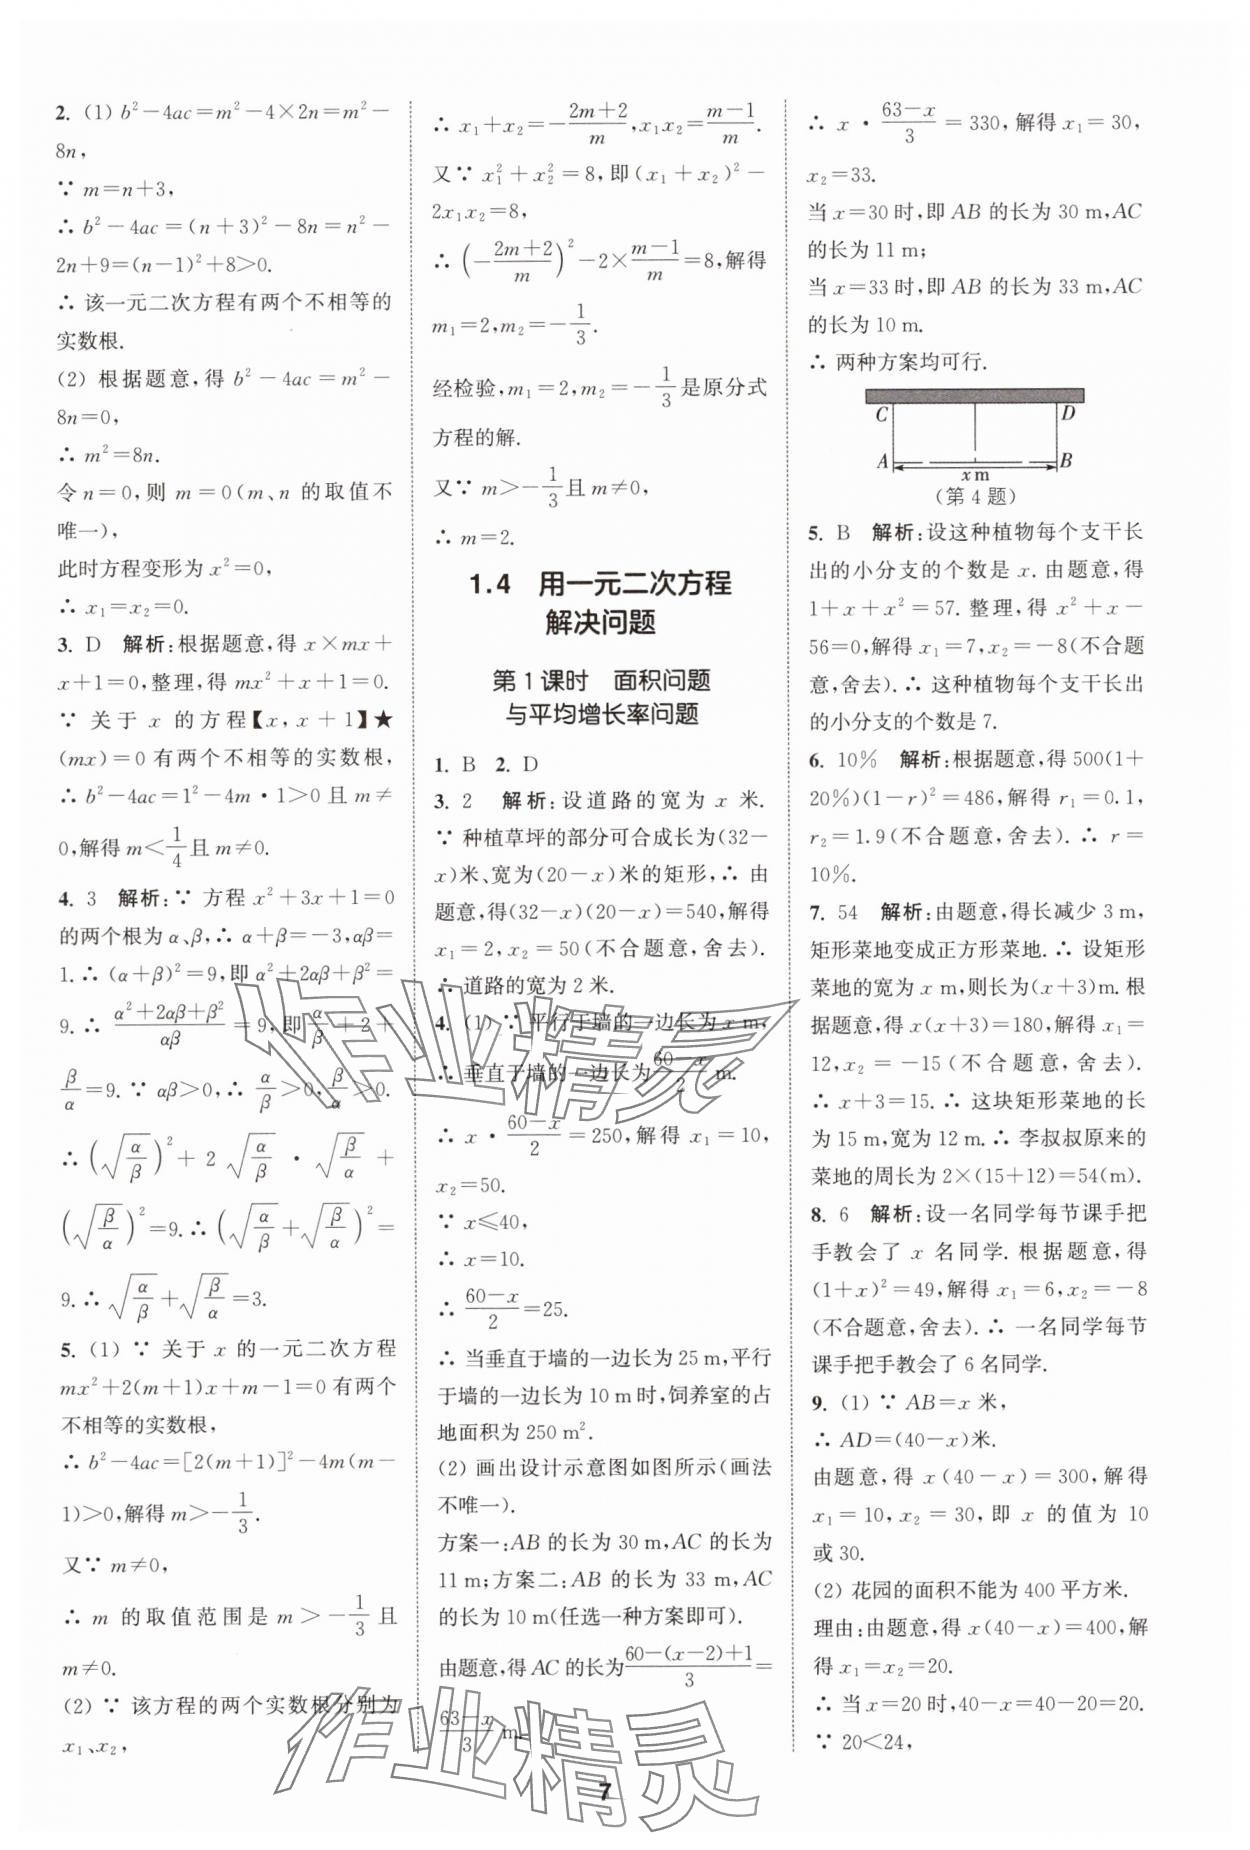 2. (1) b²－4ac＝m²－4×2n＝m²－
8n，
∵ m＝n＋3，
∴ b²－4ac＝(n＋3)²－8n＝n²－
2n＋9＝(n－1)²＋8＞0.
∴ 该一元二次方程有两个不相等的
实数根.
(2) 根据题意，得 b²－4ac＝m²－
8n＝0，
∴ m²＝8n.
令 n＝0，则 m＝0(m、n 的取值不
唯一)，
此时方程变形为 x²＝0，
∴ x₁＝x₂＝0.
3. D 解析：根据题意，得 x×mx＋
x＋1＝0，整理，得 mx²＋x＋1＝0.
∵ 关于 x 的方程【x，x＋1】★
(mx)＝0 有两个不相等的实数根，
∴ b²－4ac＝1²－4m·1＞0 且 m≠
0，解得 m＜1/4 且 m≠0.
4. 3 解析：∵ 方程 x²＋3x＋1＝0
的两个根为 α、β，∴ α＋β＝－3，αβ＝
1. ∴ (α＋β)²＝9，即 α²＋2αβ＋β²＝
9. ∴ (α²＋2αβ＋β²)/(αβ)＝9，即 α/β＋2＋
β/α＝9. ∵ αβ＞0，∴ α/β＞0，β/α＞0.
∴ (√(α/β))²＋2√(α/β)·√(β/α)＋
(√(β/α))²＝9. ∴ (√(α/β)＋√(β/α))²＝
9. ∴ √(α/β)＋√(β/α)＝3.
5. (1) ∵ 关于 x 的一元二次方程
mx²＋2(m＋1)x＋m－1＝0 有两个
不相等的实数根，
∴ b²－4ac＝[2(m＋1)]²－4m(m－
1)＞0，解得 m＞－1/3.
又∵ m≠0，
∴ m 的取值范围是 m＞－1/3 且
m≠0.
(2) ∵ 该方程的两个实数根分别为
x₁、x₂，
∴ x₁＋x₂＝－(2m＋2)/m，x₁x₂＝(m－1)/m.
又∵ x₁²＋x₂²＝8，即(x₁＋x₂)²－
2x₁x₂＝8，
∴ (－(2m＋2)/m)²－2×(m－1)/m＝8，解得
m₁＝2，m₂＝－1/3.
经检验，m₁＝2，m₂＝－1/3是原分式
方程的解.
又∵ m＞－1/3且 m≠0，
∴ m＝2.
1.4 用一元二次方程
解决问题
第1课时 面积问题
与平均增长率问题
1. B 2. D
3. 2 解析：设道路的宽为 x 米.
∵ 种植草坪的部分可合成长为(32－
x)米、宽为(20－x)米的矩形，∴ 由
题意，得(32－x)(20－x)＝540，解得
x₁＝2，x₂＝50(不合题意，舍去).
∴ 道路的宽为 2 米.
4. (1) ∵ 平行于墙的一边长为 x m，
∴ 垂直于墙的一边长为 (60－x)/2 m.
∴ x·(60－x)/2＝250，解得 x₁＝10，
x₂＝50.
∵ x≤40，
∴ x＝10.
∴ (60－x)/2＝25.
∴ 当垂直于墙的一边长为 25 m，平行
于墙的一边长为 10 m 时，饲养室的占
地面积为 250 m².
(2) 画出设计示意图如图所示(画法
不唯一).
方案一：AB 的长为 30 m，AC 的长为
11 m；方案二：AB 的长为 33 m，AC
的长为 10 m(任选一种方案即可).
由题意，得 AC 的长为(60－(x－2)＋1)/3＝
(63－x)/3 m.
∴ x·(63－x)/3＝330，解得 x₁＝30，
x₂＝33.
当 x＝30 时，即 AB 的长为 30 m，AC
的长为 11 m；
当 x＝33 时，即 AB 的长为 33 m，AC
的长为 10 m.
∴ 两种方案均可行.
C D
A B
x m
(第 4 题)
5. B 解析：设这种植物每个支干长
出的小分支的个数是 x. 由题意，得
1＋x＋x²＝57. 整理，得 x²＋x－
56＝0，解得 x₁＝7，x₂＝－8(不合题
意，舍去). ∴ 这种植物每个支干长出
的小分支的个数是 7.
6. 10% 解析：根据题意，得 500(1＋
20%)(1－r)²＝486，解得 r₁＝0.1，
r₂＝1.9(不合题意，舍去). ∴ r＝
10%.
7. 54 解析：由题意，得长减少 3 m，
矩形菜地变成正方形菜地. ∴ 设矩形
菜地的宽为 x m，则长为(x＋3)m. 根
据题意，得 x(x＋3)＝180，解得 x₁＝
12，x₂＝－15(不合题意，舍去).
∴ x＋3＝15. ∴ 这块矩形菜地的长
为 15 m，宽为 12 m. ∴ 李叔叔原来的
菜地的周长为 2×(15＋12)＝54(m).
8. 6 解析：设一名同学每节课手把
手教会了 x 名同学. 根据题意，得
(1＋x)²＝49，解得 x₁＝6，x₂＝－8
(不合题意，舍去). ∴ 一名同学每节
课手把手教会了 6 名同学.
9. (1) ∵ AB＝x 米，
∴ AD＝(40－x)米.
由题意，得 x(40－x)＝300，解得
x₁＝10，x₂＝30，即 x 的值为 10
或 30.
(2) 花园的面积不能为 400 平方米.
理由：由题意，得 x(40－x)＝400，解
得 x₁＝x₂＝20.
∴ 当 x＝20 时，40－x＝40－20＝20.
∵ 20＜24，
7
作业精灵
作业精灵